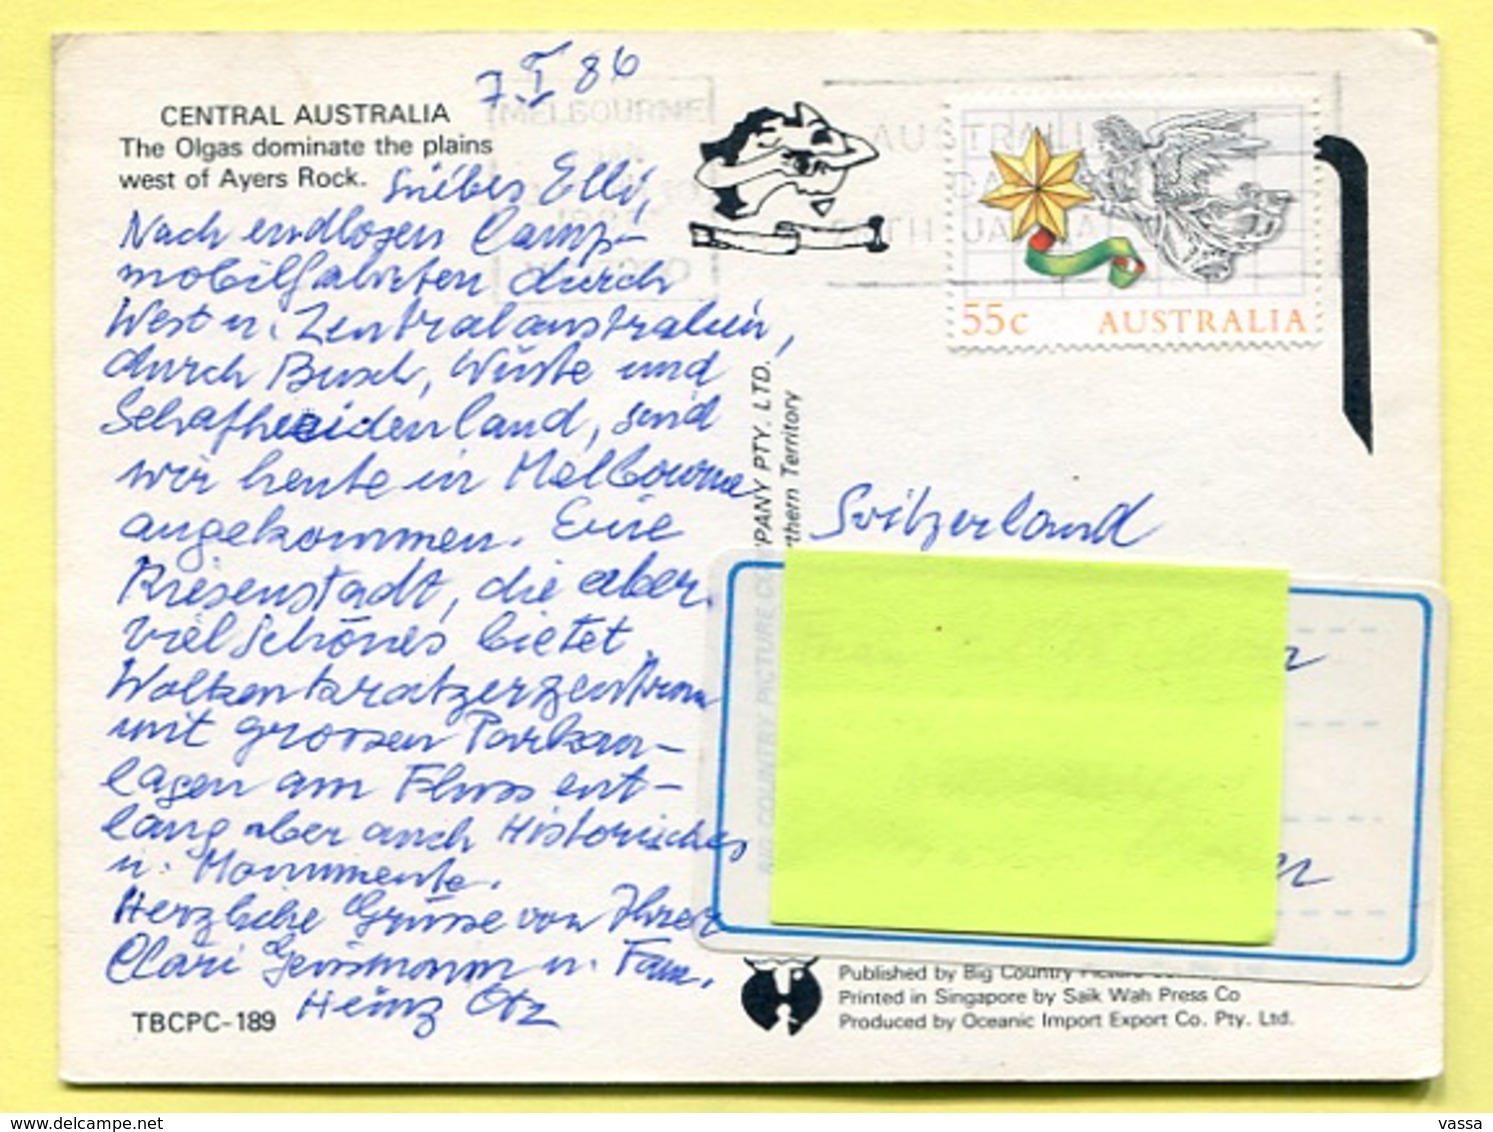 7.I 86
MELBOURNE
CENTRAL AUSTRALIA
The Olgas dominate the plains
west of Ayers Rock.
Liebes Elli,
Nach endlosen Camp-
mobilfahrten durch
West u. Zentralaustralien,
durch Busch, Wüste und
Schafheidenland, sind
wir heute in Melbourne
angekommen. Eine
Riesenstadt, die aber
viel schönes bietet.
Wolkenkratzerzentrum
mit grossen Parkan-
lagen am Fluss ent-
lang aber auch Historisches
u. Monumente.
Herzliche Grüsse von Ihrer
Clari u. Fam.
Heinz
TBCPC-189
AUSTRALIA
55c AUSTRALIA
BIG COUNTRY PICTURE COMPANY PTY. LTD.
thern Territory
Switzerland
Published by Big Country Picture
Printed in Singapore by Saik Wah Press Co
Produced by Oceanic Import Export Co. Pty. Ltd.
https://www.delcampe.net
vassa